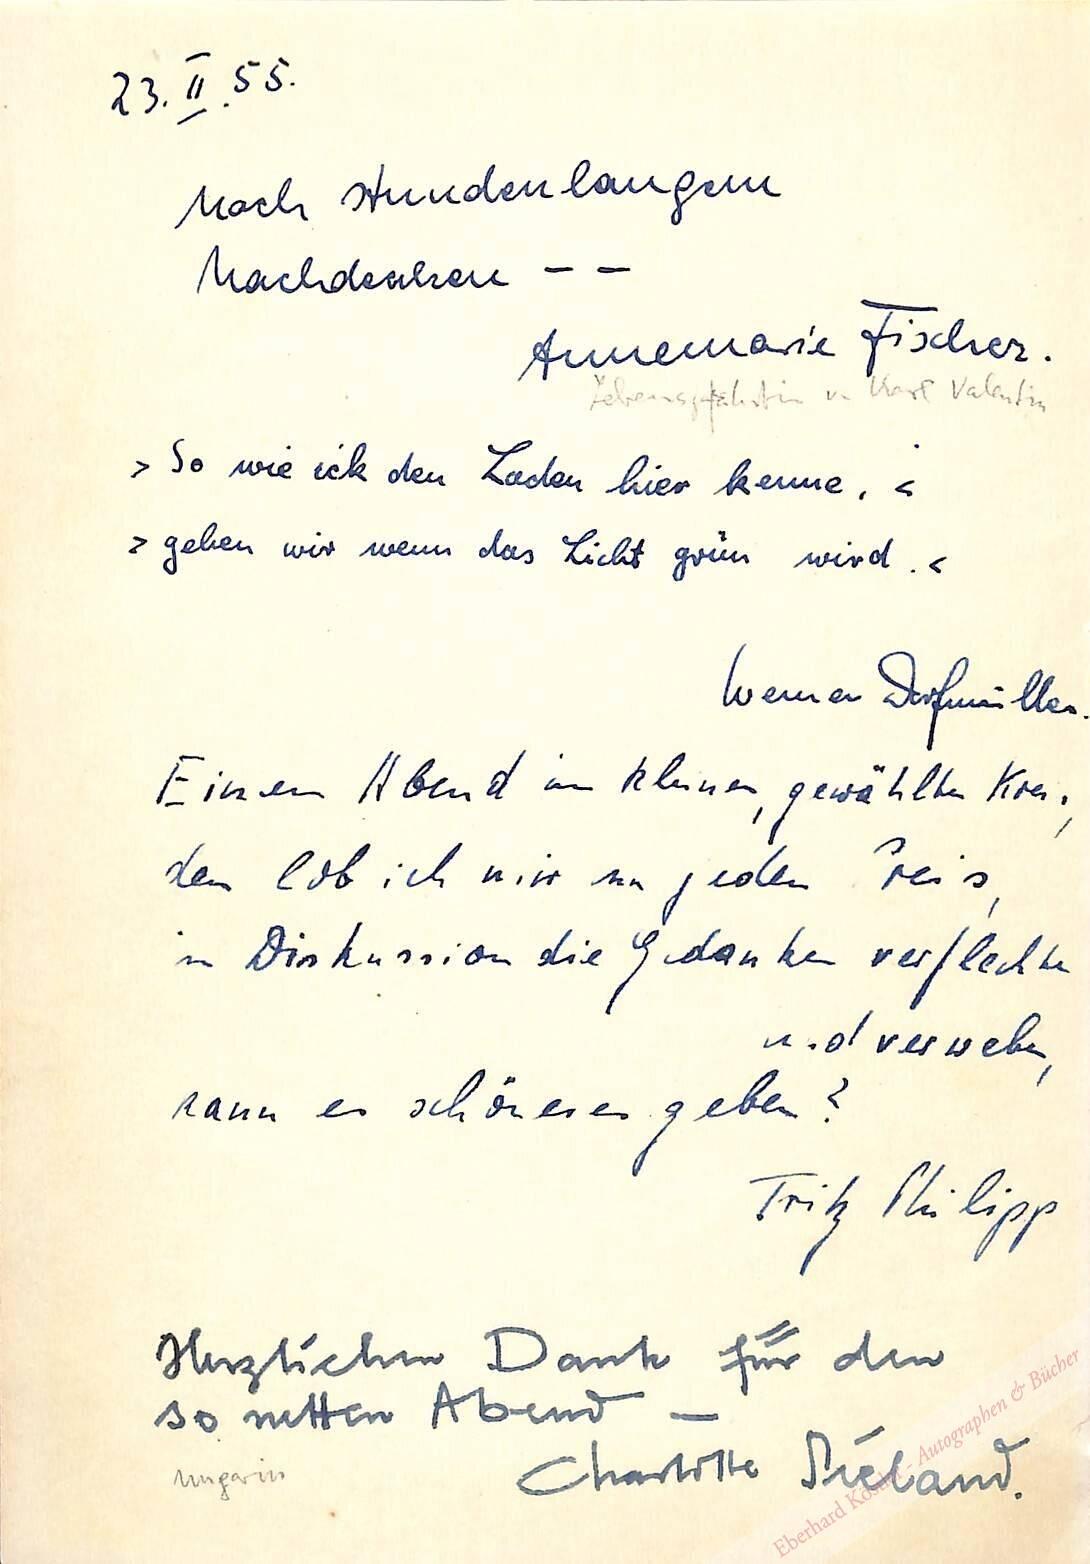 23. II. 55.
Nach stundenlangem
Nachdenken – –
Annemarie Fischer.
Lebensgefährtin v. Karl Valentin
> So wie ick den Laden hier kenne, <
> gehen wir wenn das Licht grün wird. <
Werner Dorfmüller.
Einen Abend im kleinen, gewählten Kreis,
den lob ich mir um jeden Preis,
in Diskussion die Gedanken verflechten
und verweben,
kann es schöneres geben?
Fritz Philipp
Herzlichen Dank für den
so netten Abend –
Ungarin
Charlotte
Eberhard Köstler - Autographen & Bücher